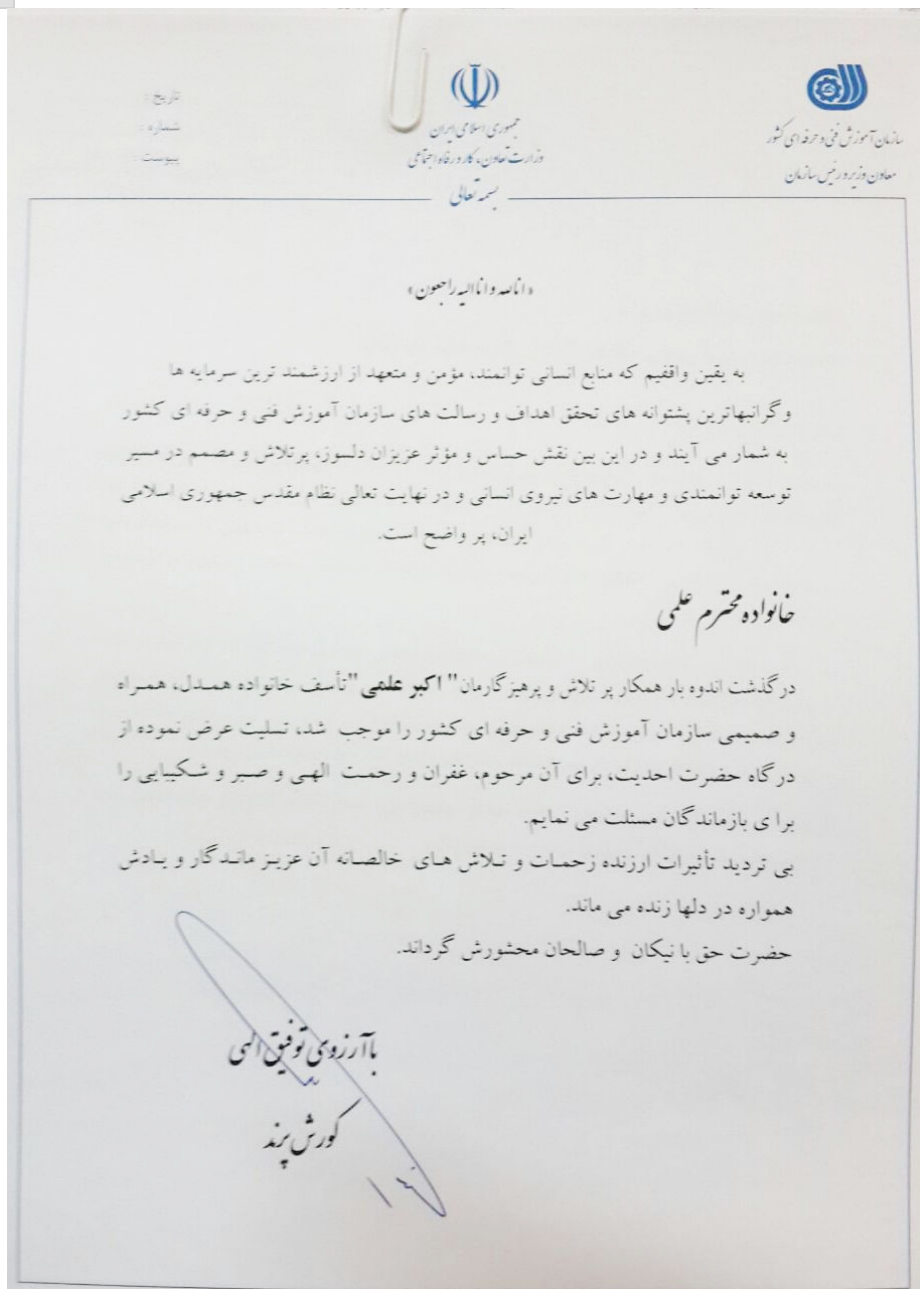 تاریخ :
شماره :
پیوست :
جمهوری اسلامی ایران
وزارت تعاون، کار و رفاه اجتماعی
بسمه تعالی
سازمان آموزش فنی و حرفه ای کشور
معاون وزیر و رئیس سازمان
«انالله و اناالیه راجعون»
به یقین واقفیم که منابع انسانی توانمند، مؤمن و متعهد از ارزشمند ترین سرمایه ها
وگرانبهاترین پشتوانه های تحقق اهداف و رسالت های سازمان آموزش فنی و حرفه ای کشور
به شمار می آیند و در این بین نقش حساس و مؤثر عزیزان دلسوز، پرتلاش و مصمم در مسیر
توسعه توانمندی و مهارت های نیروی انسانی و در نهایت تعالی نظام مقدس جمهوری اسلامی
ایران، پر واضح است.
خانواده محترم علمی
درگذشت اندوه بار همکار پر تلاش و پرهیزگارمان" اکبر علمی"تأسف خانواده همـدل، همـراه
و صمیمی سازمان آموزش فنی و حرفه ای کشور را موجب شد، تسلیت عرض نموده از
درگاه حضرت احدیت، برای آن مرحوم، غفران و رحمـت الهـی و صـبر و شـکیبایی را
برا ی بازماندگان مسئلت می نمایم.
بی تردید تأثیرات ارزنده زحمـات و تـلاش هـای خالصـانه آن عزیـز مانـدگار و یـادش
همواره در دلها زنده می ماند.
حضرت حق با نیکان و صالحان محشورش گرداند.
باآرزوی توفیق الهی
کورش پرند